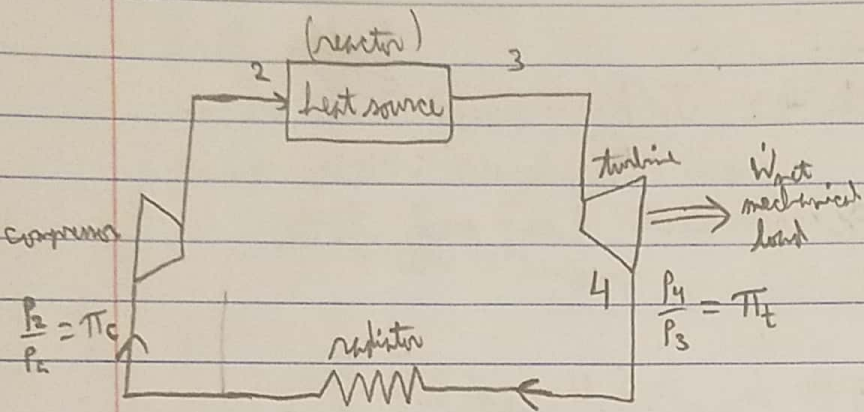 (reactor)
2
3
heat source
turbine
Ẇnet
mechanical
load
compressor
4
P4/P3 = πt
P2/P1 = πc
radiator